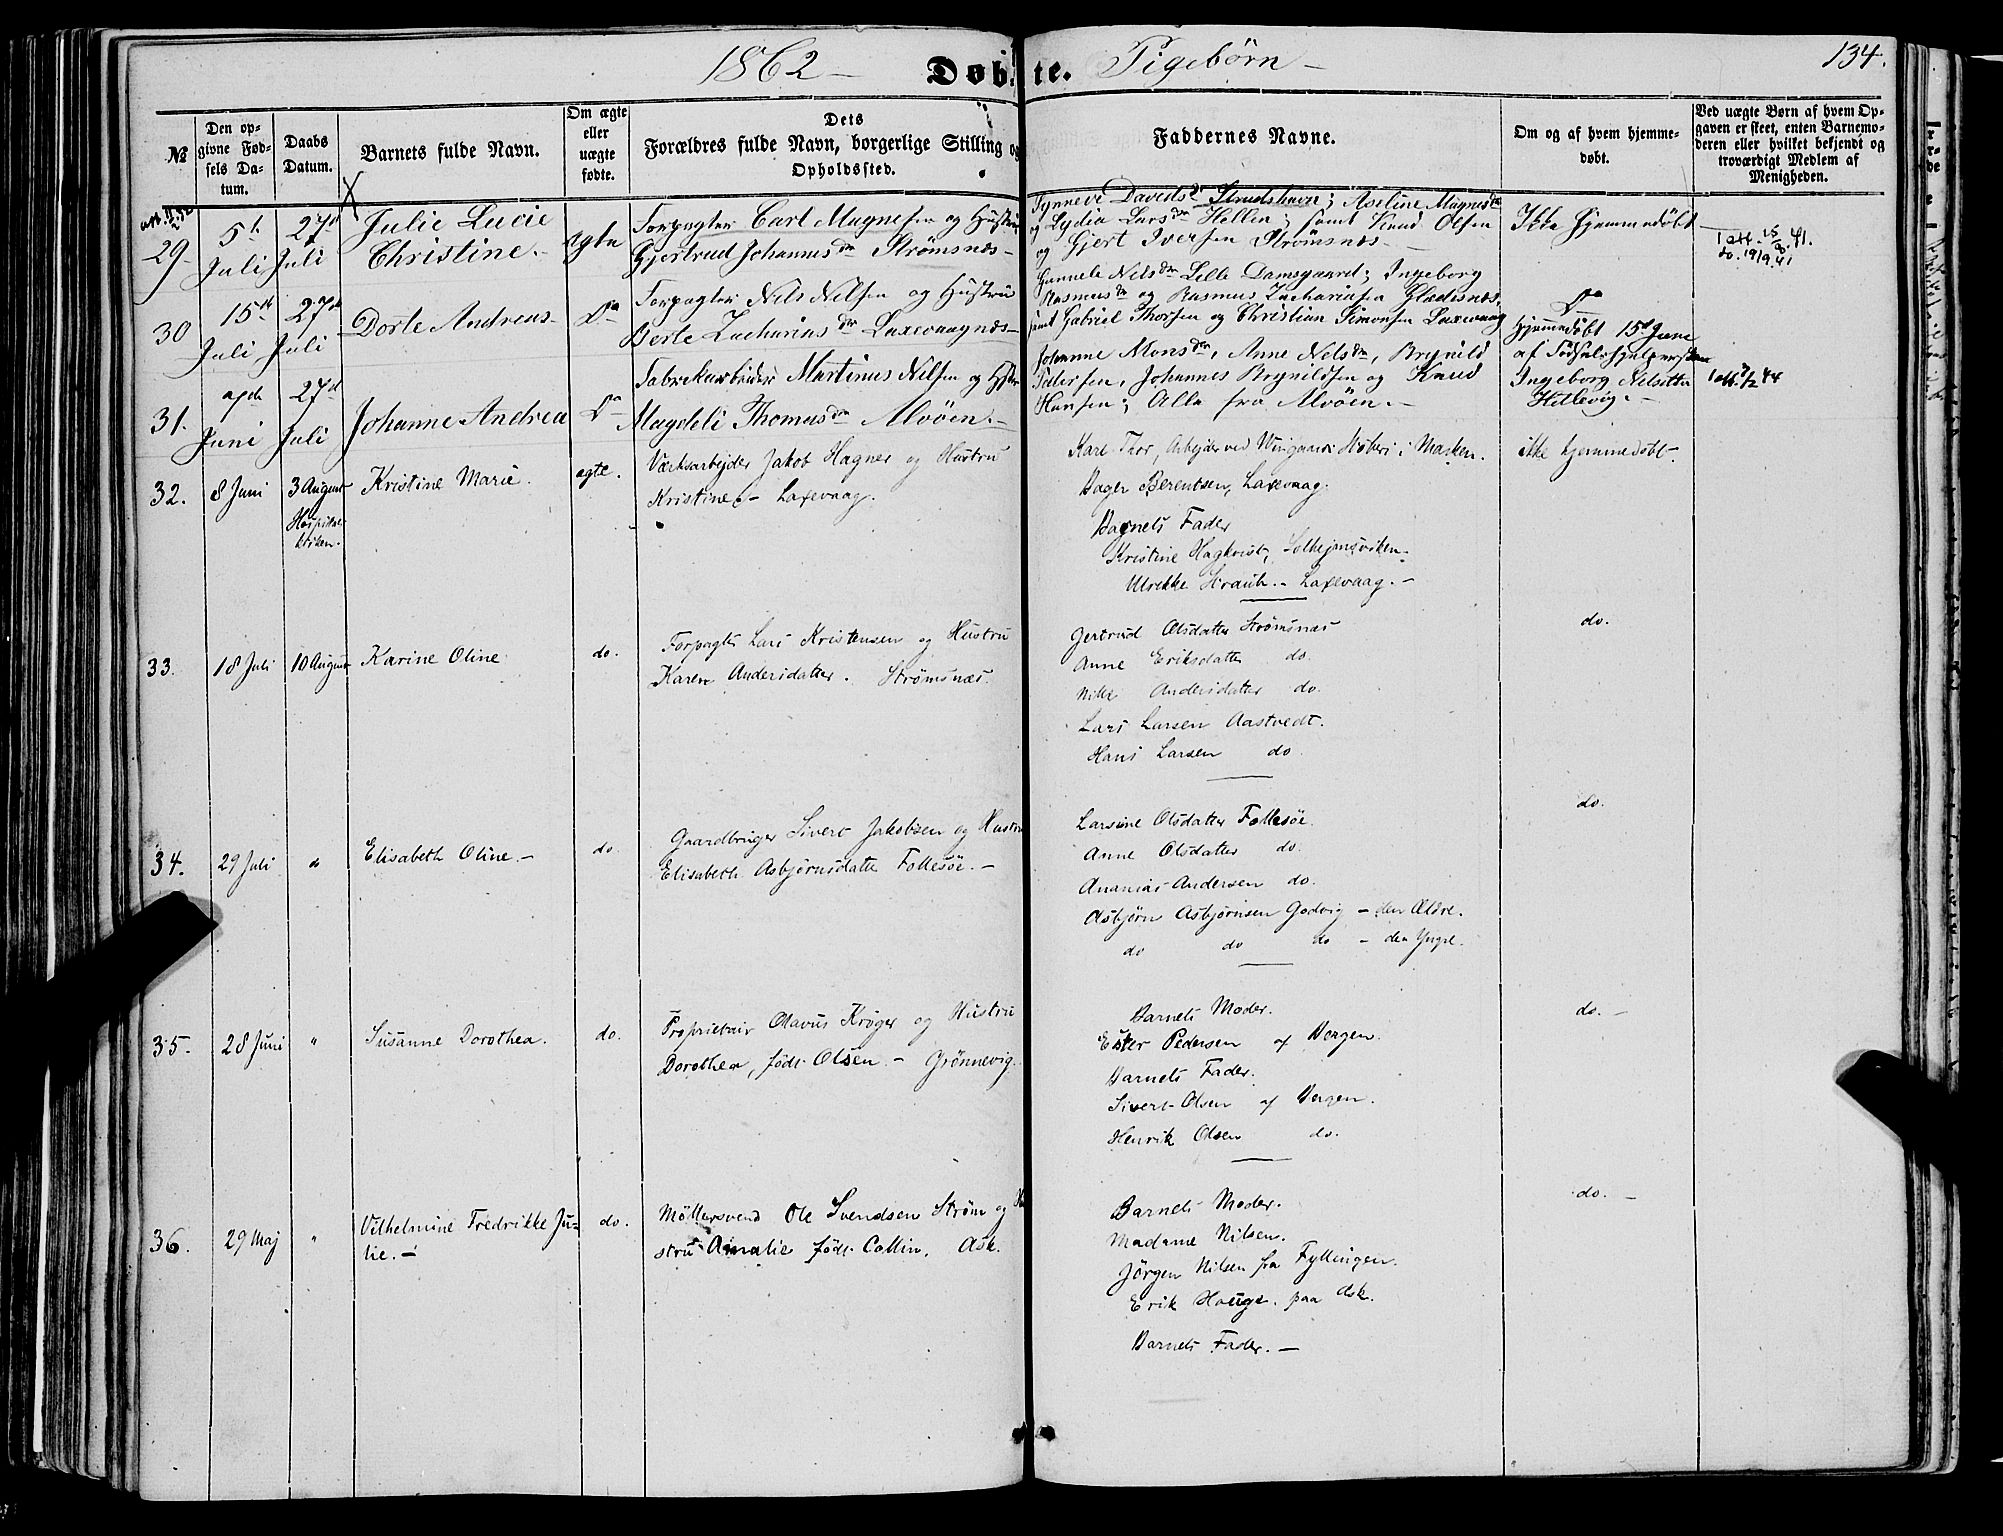 1862 — Døbte. Pigebörn —
134.
№
Den opgivne Fødsels Datum.
Daabs Datum.
Barnets fulde Navn.
Om ægte eller uægte fødte.
Dets Forældres fulde Navn, borgerlige Stilling og Opholdssted.
Faddernes Navne.
Om og af hvem hjemmedøbt.
Ved uægte Børn af hvem Opgaven er skeet, enten Barnemoderen eller hvilket bekjendt og troværdigt Medlem af Menigheden.
29
5te Juli
27de Juli
Julie Lucie
Christine.
ægte
Forpagter Carl Magnesen og Hustru
Gjertrud Johannesdr Strömsnæs —
Synneve Davidsdr Strudshavn; Aseline Magnesdr
og Lydia Larsdr Hollen; samt Knud Olsen
og Gjert Iversen Strömsnæs —
Ikke Hjemmedöbt
1 att. 15/8 41.
do. 19/9 41
30
15de Juli
27de Juli
Dorte Andreas
Do
Forpagter Nels Nilsen og Hustru
Berte Zachariasdr Laxevaagnæs —
Gunnele Nelsdr Lille Damsgaard; Ingeborg
Rasmusdr og Rasmus Zachariasen Gladesnæs,
samt Gabriel Thorsen og Christian Simonsen Laxevaag
Do
31.
Juni
27de Juli
Johanne Andrea
Do
Fabrikarbeider Martinus Nilsen og Hstru
Magdeli Thomasdr Alvöen. —
Johanne Monsdr, Anne Nelsdr, Brynild
Pedersen, Johannes Brynildsen og Knud
Hansen; Alle fra Alvöen. —
Hjemmedöbt 15de Juni
af Födselshjelpersken
Ingeborg Nilsdtr
Hillevig. —
1 att. 7/2 44
32.
8 Juni
3 August
Hospitalskirken.
Kristine Marie.
ægte.
Værksarbejder Jakob Hagner og Hustru
Kristine. — Laxevaag.
Karl Thor, Arbejder ved Wingaards Støberi i Marken.
Hager Berentsen, Laxevaag.
Barnets Fader
Kristine Hagkvist, Solhejmsviken.
Ulrikke Straub. — Laxevaag. —
ikke hjemmedøbt.
33.
18 Juli
10 August
Karine Oline
do.
Forpagter Lars Kristensen og Hustru
Karen Andersdatter. Strømsnæs.
Gjertrud Olsdatter Strømsnæs
Anne Eriksdatter do.
Nille Andersdatter do.
Lars Larsen Aastvedt.
Hans Larsen do
do.
34.
29 Juli
do
Elisabeth Oline. —
do.
Gaardbruger Sivert Jakobsen og Hustru
Elisabeth Asbjørnsdatter Follesøe. —
Larsine Olsdatter Follesøe.
Anne Olsdatter do.
Ananias Andersen do.
Asbjørn Asbjørnsen Godvig — den Ældre.
do do do — den Yngre.
do.
35.
28 Juni
"
Susanne Dorothea.
do.
Proprietair Olavus Krøger og Hustru
Dorothea, født Olsen. — Grønnevig.
Barnets Moder.
Ester Pedersen af Bergen.
Barnets Fader.
Sivert Olsen af Bergen.
Henrik Olsen do.
do. —
36.
29 Maj
"
Vilhelmine Fredrikke Ju-
lie. —
do.
Møllersvend Ole Svendsen Strøm og Hu
stru Amalie født Collin. Ask.
Barnets Moder.
Madame Nilsen.
Jørgen Nilsen fra Fyllingen.
Erik Hauge. paa Ask.
Barnets Fader. —
do. —